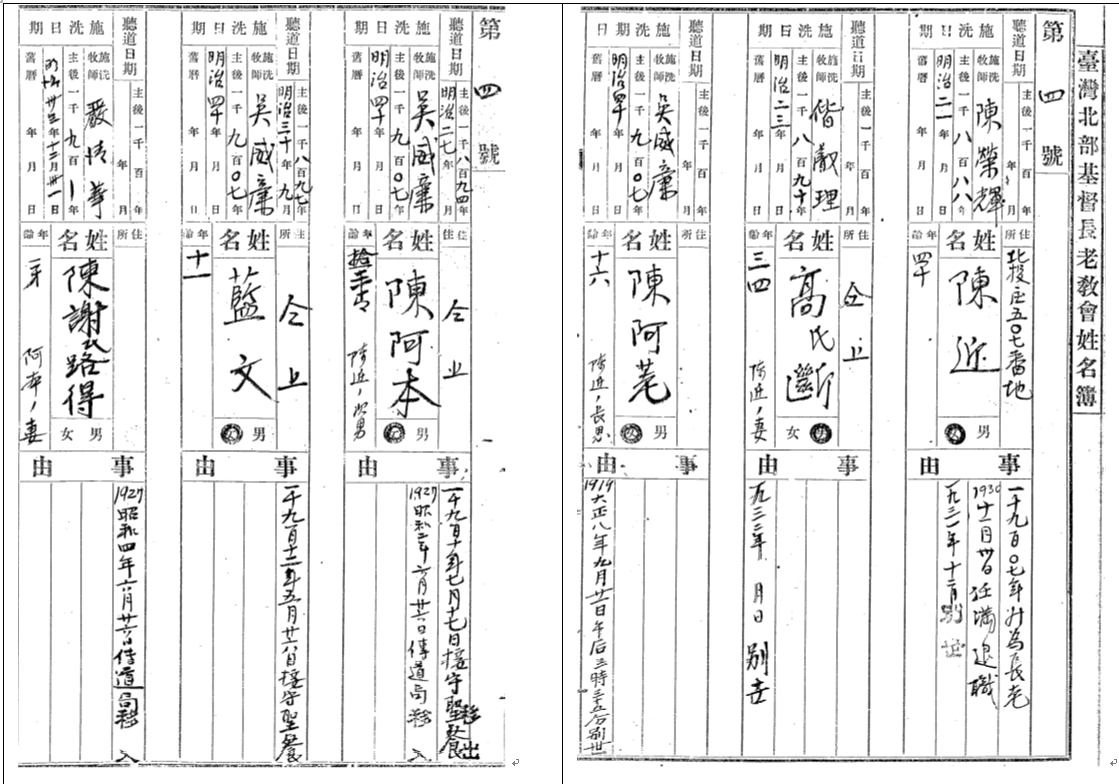 臺灣北部基督長老教會姓名簿
第四號
聽道日期
主後一千 百 年 月
施洗日期
施洗牧師 陳榮輝
主後一千八百八八年
明治二一 年 月 日
舊曆
住所 北投庄五〇七番地
姓名 陳近
年齡 四十
男 女
事由
一千九百〇七年升為長老
1930 十一月卅日任滿退職
一九三一年十二月別世
聽道日期
主後一千 百 年 月
施洗日期
施洗牧師 偕叡理
主後一千八百九十年
明治二三 年 月 日
舊曆
住所 仝上
姓名 高氏斷
年齡 三四
陳近ノ妻
男 女
事由
一九三二年 月 日 別世
聽道日期
主後一千 百 年 月
施洗日
施洗牧師 吳威廉
主後一千九百〇七年
明治四十 年 月 日
舊曆
住所
姓名 陳阿荖
年齡 十六
陳近ノ長男
男 女
事由
1919 大正八年九月廿日午后三時三五分別世
第四號
聽道日期
主後一千八百九四年
明治二七年 月
施洗日期
施洗牧師 吳威廉
主後一千九百〇七年
明治四十 年 月 日
舊曆
住所 仝上
姓名 陳阿本
年齡
陳近ノ次男
男 女
事由
一千九百十年七月十七日接守聖餐
移出
1927 昭和二年六月廿六日傳道局移入
聽道日期
主後一千八百九七年
明治三十年九月
施洗日期
施洗牧師 吳威廉
主後一千九百〇七年
明治四十 年 月 日
舊曆
住所 仝上
姓名 藍文
年齡 十一
男 女
事由
一千九百十二年五月廿六日接守聖餐
聽道日期
主後一千 百 年 月
施洗日期
施洗牧師 嚴清華
主後一千九百一年
明治卅四年十二月卅一日
舊曆
住所
姓名 陳謝氏路得
年齡 一才
阿本ノ妻
男 女
事由
1927 昭和四年六月廿六日傳道局移入